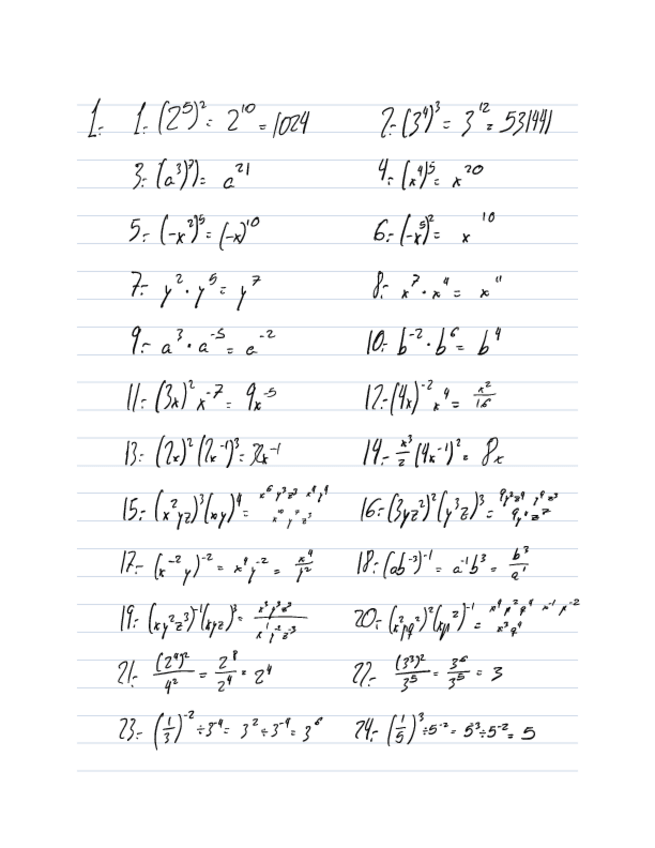 1. 1. (2⁵)² = 2¹⁰ = 1024 2. (3⁴)³ = 3¹² = 531441
3. (a³)⁷ = a²¹ 4. (x⁴)⁵ = x²⁰
5. (-x²)⁵ = (-x)¹⁰ 6. (-x⁵)² = x¹⁰
7. y² · y⁵ = y⁷ 8. x⁷ · x⁴ = x¹¹
9. a³ · a⁻⁵ = a⁻² 10. b⁻² · b⁶ = b⁴
11. (3x)² x⁻⁷ = 9x⁻⁵ 12. (4x)⁻² x⁴ = x²/16
13. (2x)² (2x⁻¹)³ = 32x⁻¹ 14. x³/2 (4x⁻¹)² = 8x
15. (x²yz)³ (xy)⁴ = x⁶y³z³ x⁴y⁴
x¹⁰y⁷z³
16. (3yz²)² (y³z)³ =
17. (x⁻²y)⁻² = x⁴y⁻² = x⁴/y² 18. (ab⁻³)⁻¹ = a⁻¹b³ = b³/a¹
19. (xy²z³)⁻¹ (xyz)³ = x³y³z³/x¹y²z³
20. (x²pq²)² (xp²)⁻¹ = x⁴p²q⁴ x⁻¹p⁻²
x³q⁴
21. (2⁴)²/4² = 2⁸/2⁴ = 2⁴ 22. (3³)²/3⁵ = 3⁶/3⁵ = 3
23. (1/3)⁻² ÷ 3⁻⁴ = 3² ÷ 3⁻⁴ = 3⁶ 24. (1/5)³ ÷ 5⁻² = 5³ ÷ 5⁻² = 5